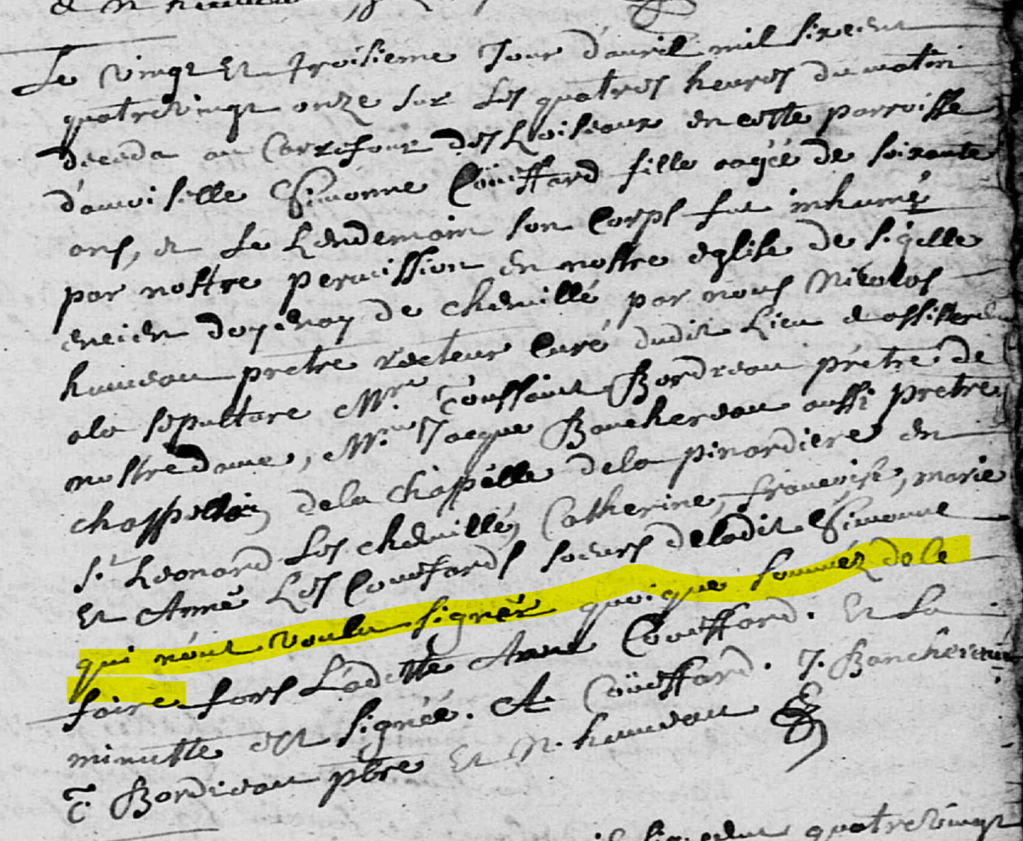 Le vingt et troisieme Jour d'auril mil six cent
quatre vingt onze sur les quatres heures du matin
deceda au Carrefour des Loiseaux en cette parroisse
d'amoiselle Simonne Coüeffard fille aagée de soixante
ans, et le Lendemain son corps fut inhumé
par nostre permission en nostre eglise de st gille
encien doyenay de chemillé par nous Nicolas
huneau pretre recteur Curé dudit Lieu
a la sepulture Mre Toussaint Bordreau prétre de
nostre dame, Mre Jacque Banchereau aussi pretre
chappelain de la chappelle de la pinardiere en
st Leonard Les chemillé, Catherine, françoise, marie
et Anne Les Coueffards soeurs de ladit Simonne
qui n'ont voulu signer quoique sommez de le
faire fors Ladette Anne Coueffard. Et la
minutte est signée. A. Coüeffard. J. Banchereau
T. Bordreau pbre et N. huneau
quatre vingt